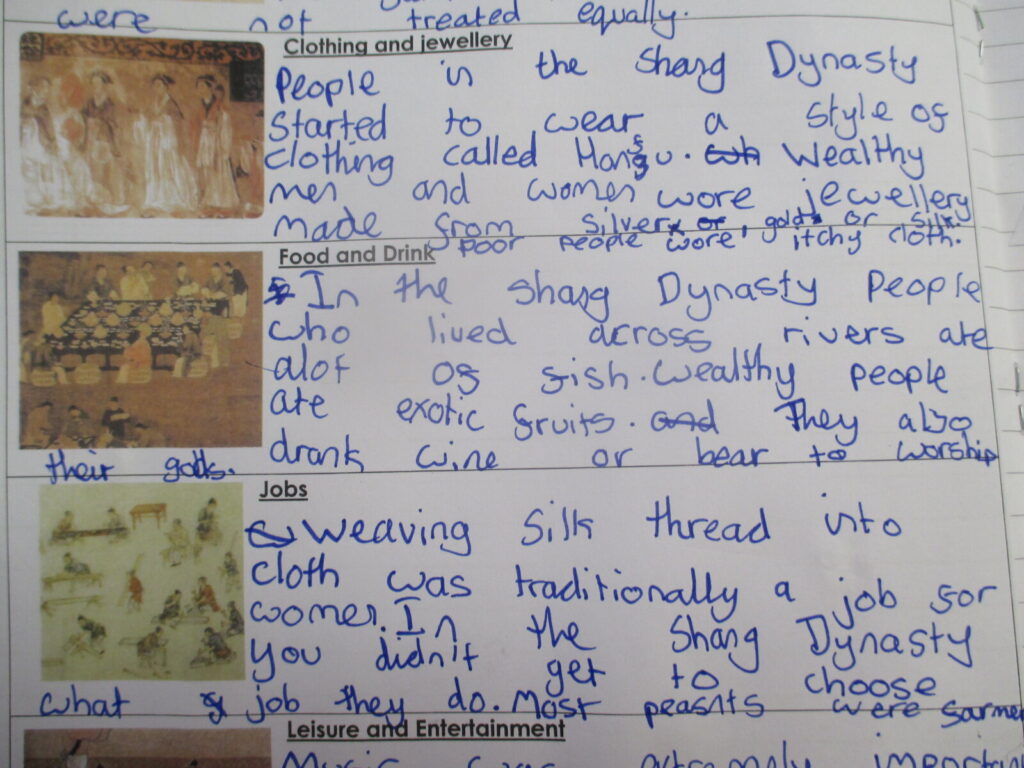 were not treated equally.
Clothing and jewellery
People in the Shang Dynasty
started to wear a style of
clothing called Hanfu. Wealthy
men and women wore jewellery
made from silver, gold or silk.
poor people wore itchy cloth.
Food and Drink
In the Shang Dynasty People
who lived across rivers ate
alot of fish. Wealthy people
ate exotic fruits. They also
drank wine or bear to worship
their gods.
Jobs
Weaving silk thread into
cloth was traditionally a job for
women. In the Shang Dynasty
you didn't get to choose
what job they do. Most peasnts were
Leisure and Entertainment
Music was